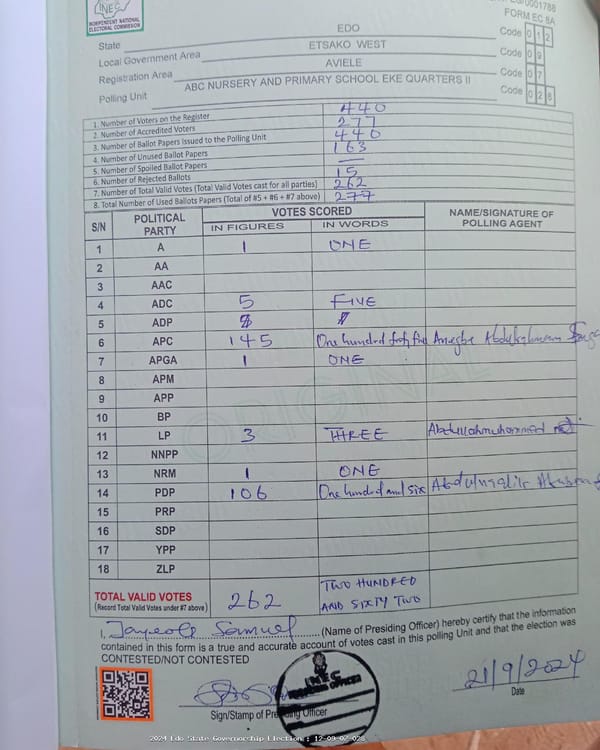 INEC
INDEPENDENT NATIONAL
ELECTORAL COMMISSION
0001788
FORM EC 8A
State EDO Code 0 1 2
Local Government Area ETSAKO WEST Code 0 9
Registration Area AVIELE Code 0 7
Polling Unit ABC NURSERY AND PRIMARY SCHOOL EKE QUARTERS II Code 0 2 8
1. Number of Voters on the Register 440
2. Number of Accredited Voters 277
3. Number of Ballot Papers Issued to the Polling Unit 440
4. Number of Unused Ballot Papers 163
5. Number of Spoiled Ballot Papers —
6. Number of Rejected Ballots 15
7. Number of Total Valid Votes (Total Valid Votes cast for all parties) 262
8. Total Number of Used Ballots Papers (Total of #5 + #6 + #7 above) 277
S/N POLITICAL PARTY VOTES SCORED NAME/SIGNATURE OF POLLING AGENT
IN FIGURES IN WORDS
1 A 1 ONE
2 AA
3 AAC
4 ADC 5 FIVE
5 ADP
6 APC 145 One hundred forty five
7 APGA 1 ONE
8 APM
9 APP
10 BP
11 LP 3 THREE Abdullahmuhammed
12 NNPP
13 NRM 1 ONE
14 PDP 106 One hundred and six
15 PRP
16 SDP
17 YPP
18 ZLP
ORIGINAL
TOTAL VALID VOTES 262 TWO HUNDRED
(Record Total Valid Votes under #7 above) AND SIXTY TWO
I, Samuel (Name of Presiding Officer) hereby certify that the information
contained in this form is a true and accurate account of votes cast in this polling Unit and that the election was
CONTESTED/NOT CONTESTED
INEC
Sign/Stamp of Presiding Officer
21/9/2024
Date
2024 Edo State Governorship Election : 12-09-07-028